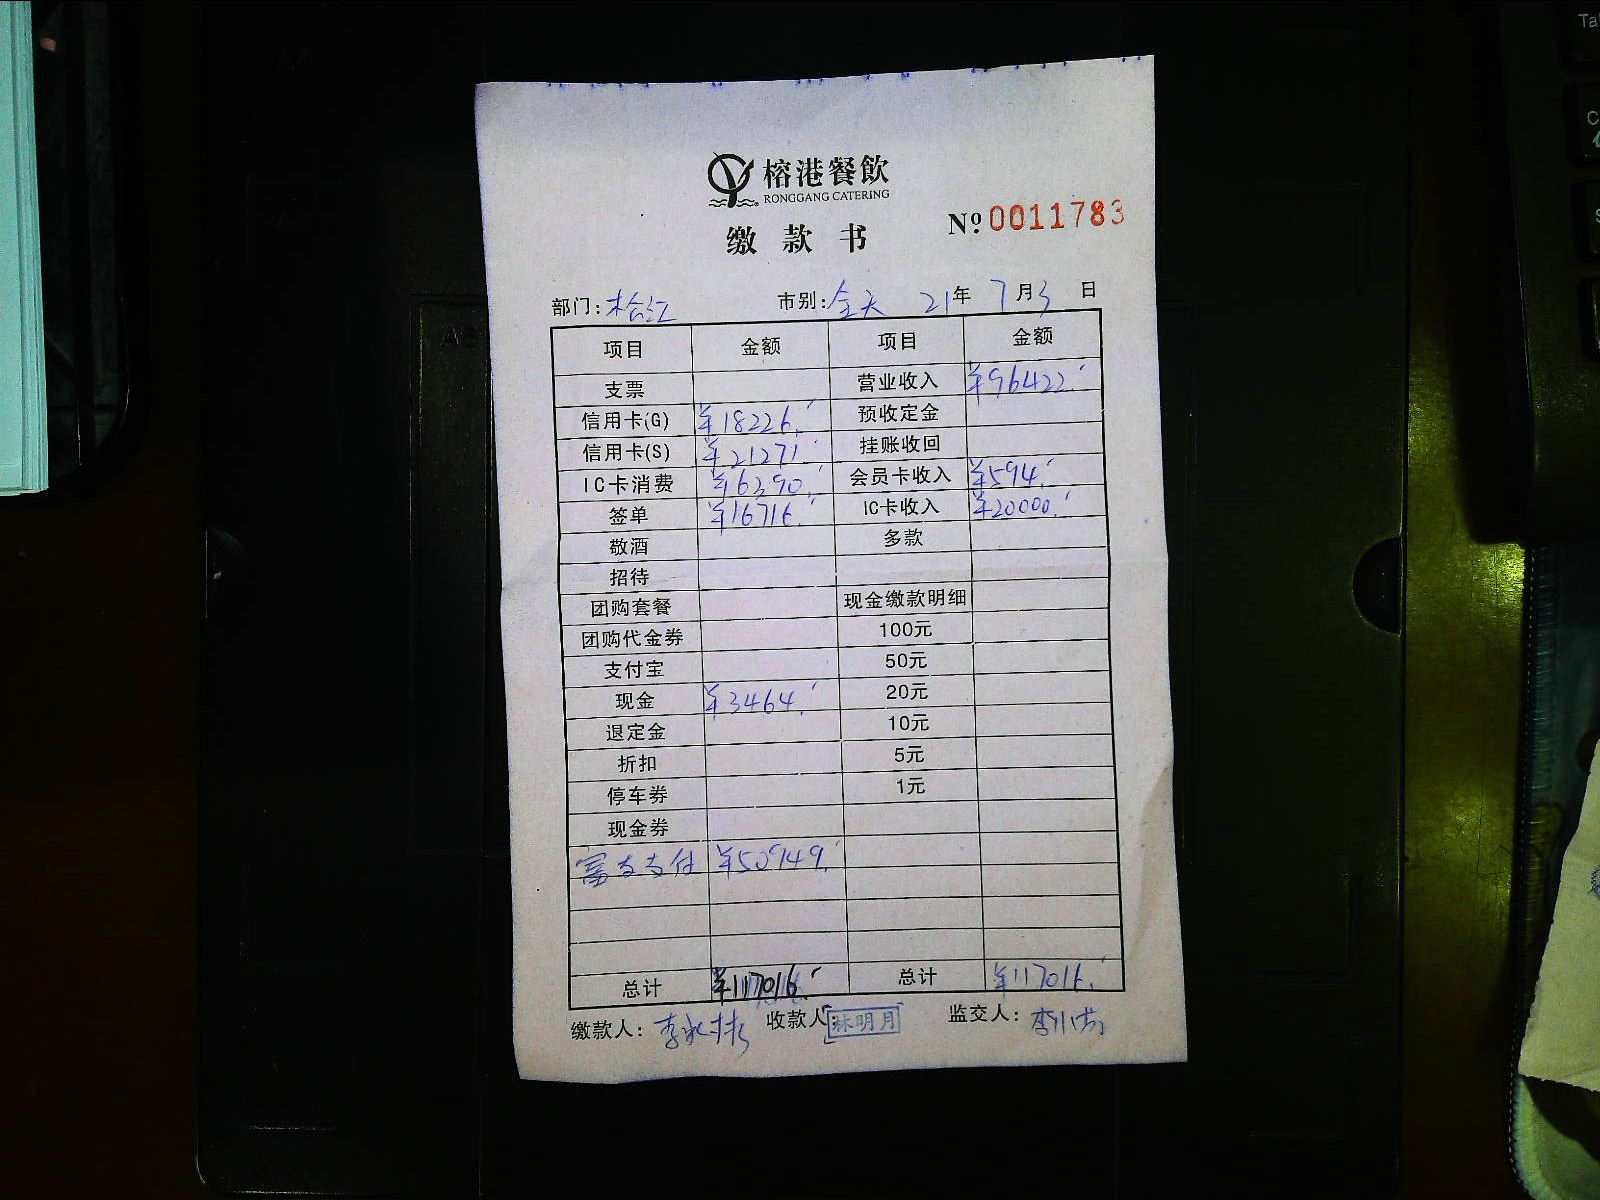 榕港餐飲
RONGGANG CATERING
缴款书
№ 0011783
部门: 松江 市别: 全天 21年 7月3日
项目 金额 项目 金额
支票 营业收入 ¥96422.-
信用卡(G) ¥18226.- 预收定金
信用卡(S) ¥21271.- 挂账收回
IC卡消费 ¥6390.- 会员卡收入 ¥594.-
签单 ¥16716.- IC卡收入 ¥20000.-
敬酒 多款
招待
团购套餐 现金缴款明细
团购代金券 100元
支付宝 50元
现金 ¥3464.- 20元
退定金 10元
折扣 5元
停车券 1元
现金券
富友支付 ¥50949.-
总计 ¥117016.- 总计 ¥117016.-
缴款人: 收款人 林明月 监交人: